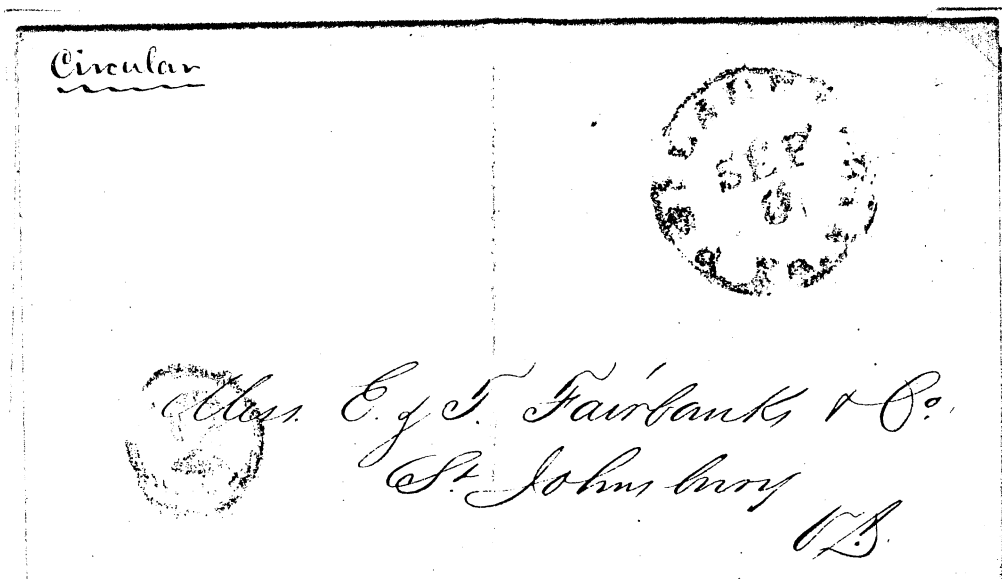 Circular
SEP
Mess. E. & T. Fairbanks & Co.
St. Johnsbury
Vt.